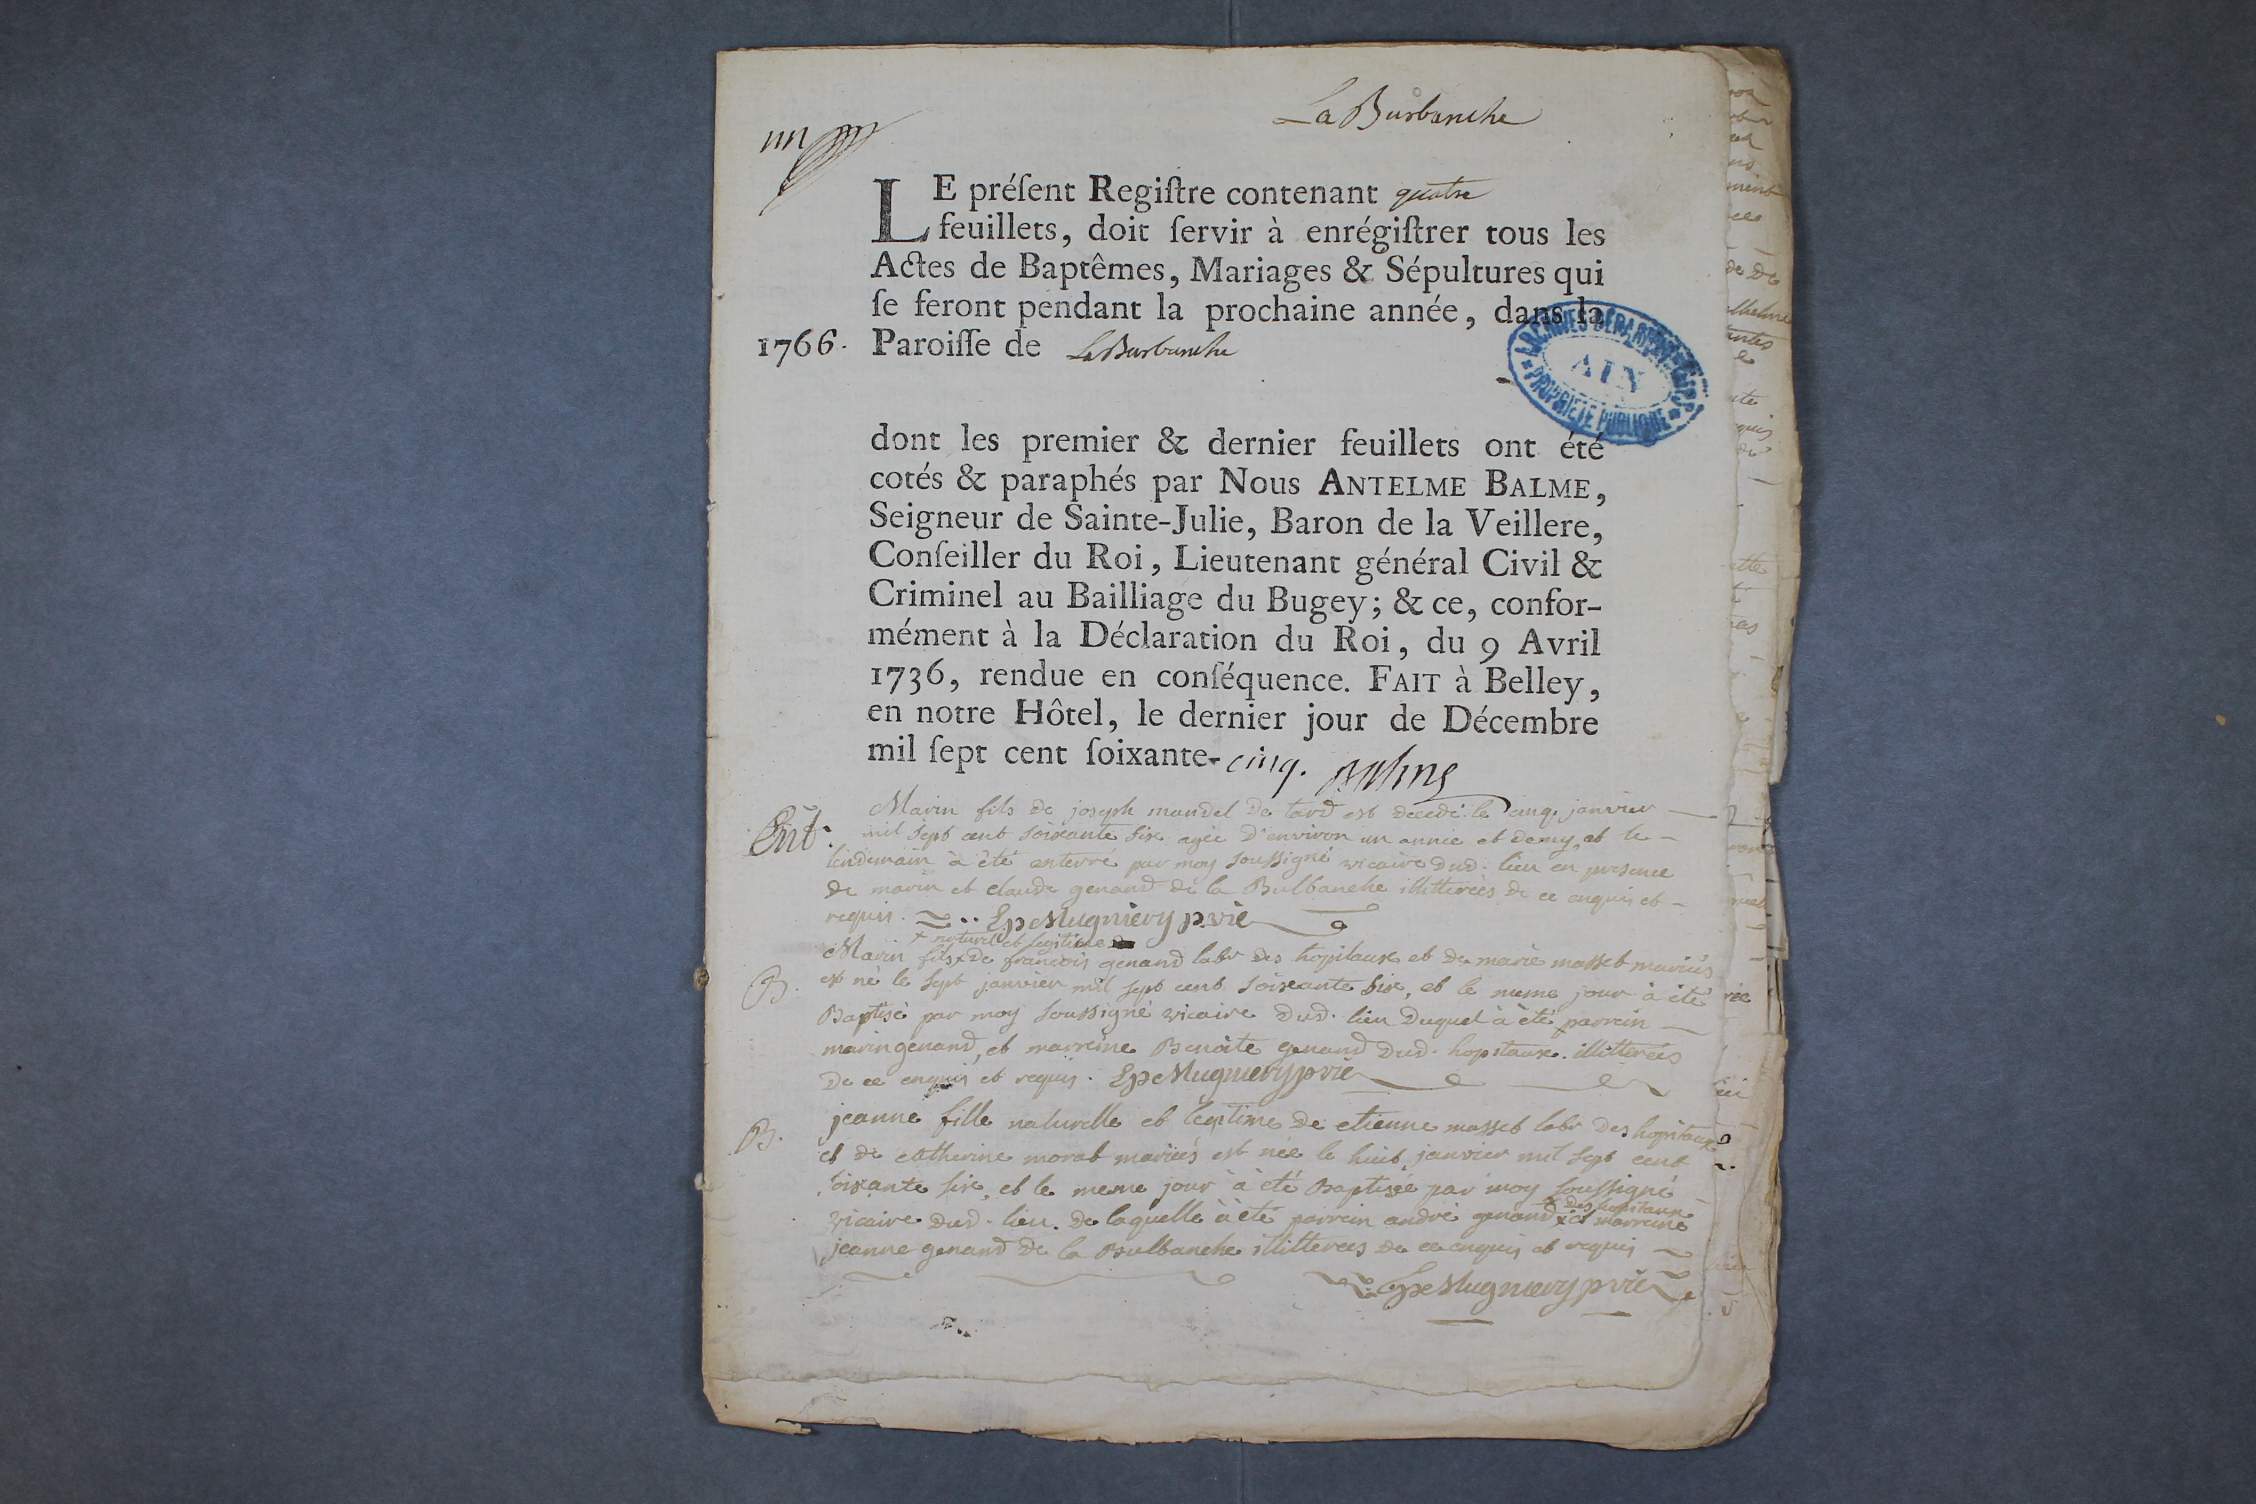 La Burbanche
un
LE préſent Regiſtre contenant quatre
feuillets, doit ſervir à enrégiſtrer tous les
Actes de Baptêmes, Mariages & Sépultures qui
ſe feront pendant la prochaine année, dans la
1766. Paroiſſe de La Burbanche
ARCHIVES DÉPARTEMENTALES
AIN
PROPRIÉTÉ PUBLIQUE
dont les premier & dernier feuillets ont été
cotés & paraphés par Nous ANTELME BALME,
Seigneur de Sainte-Julie, Baron de la Veillere,
Conſeiller du Roi, Lieutenant général Civil &
Criminel au Bailliage du Bugey; & ce, confor-
mément à la Déclaration du Roi, du 9 Avril
1736, rendue en conſéquence. FAIT à Belley,
en notre Hôtel, le dernier jour de Décembre
mil ſept cent ſoixante-cinq. Balme
Marin fils de joseph mandel de tard est decedé le cinq janvier
Ent. mil sept cent soixante six agée d'environ un année et demy, et le
lendemain à été enterré par moy soussigné vicaire dud. lieu en presence
de marin et claude genand de la Bulbanche illitterées de ce enquis et
requis. Mugniery p. vic
+ naturel et legitime
Marin fils + de francois genand labr des hopitaux et de marie masset mariés
B. est né le sept janvier mil sept cent soixante six, et le meme jour à été
Baptisé par moy soussigné vicaire dud. lieu duquel à été parrein
marin genand, et marreine Benoite genand dud. hopitaux. illitterées
de ce enquis et requis. Mugniery p vic
B. jeanne fille naturelle et legitime de etienne masset labr des hopitaux
et de catherine morat mariés est née le huit janvier mil sept cent
soixante six, et le meme jour à été Baptisée par moy soussigné
+ des hopitaux
vicaire dud. lieu. de laquelle à été parrein andré genand + et marreine
jeanne genand de la Bulbanche illitterees de ce enquis et requis
Mugniery p vic